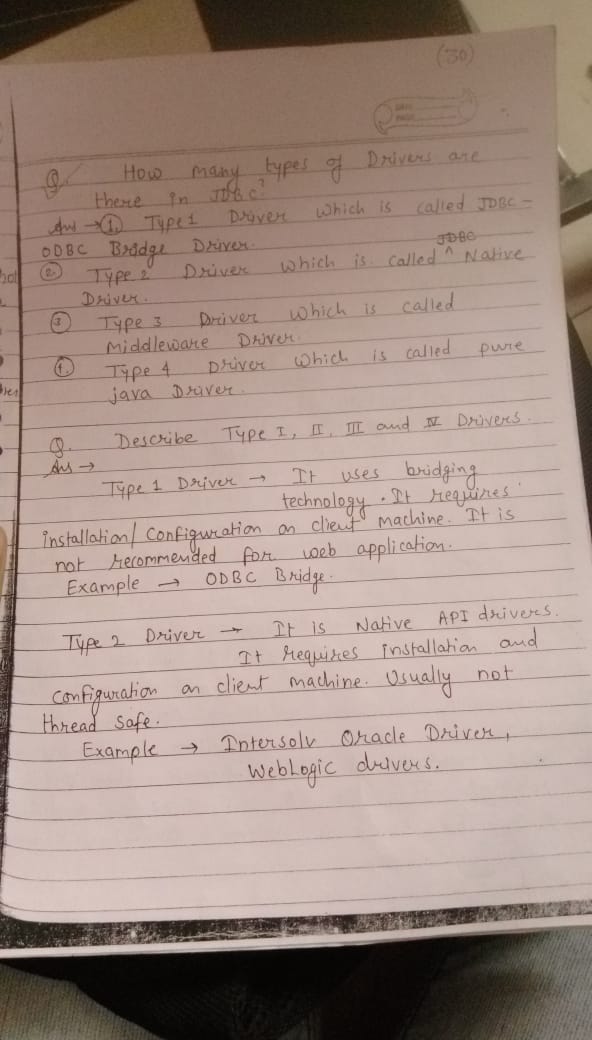 (30)
DATE
PAGE
Q. How many types of Drivers are
there in JDBC?
Ans → ① Type 1 Driver which is called JDBC-
ODBC Bridge Driver.
② Type 2 Driver which is called ^ JDBC Native
Driver.
③ Type 3 Driver which is called
Middleware Driver.
④ Type 4 Driver which is called pure
java Driver.
Q. Describe Type I, II, III and IV Drivers.
Ans →
Type 1 Driver → It uses bridging
technology. It requires
installation/configuration on client machine. It is
not recommended for web application.
Example → ODBC Bridge.
Type 2 Driver → It is Native API drivers.
It requires installation and
configuration on client machine. Usually not
thread safe.
Example → Intersolv Oracle Driver,
WebLogic drivers.